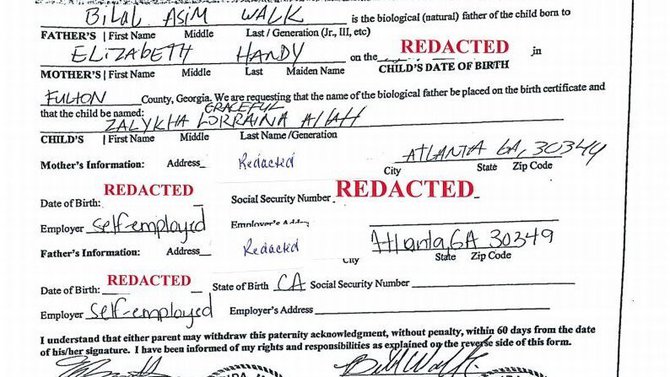 Bilal Asim Walk is the biological (natural) father of the child born to
FATHER'S | First Name Middle Last / Generation (Jr., III, etc)
Elizabeth Handy on the REDACTED in
MOTHER'S | First Name Middle Last Maiden Name CHILD'S DATE OF BIRTH
Fulton County, Georgia. We are requesting that the name of the biological father be placed on the birth certificate and
Graceful
that the child be named: Zalykha Lorraina Allah
CHILD'S First Name Middle Last Name /Generation
Mother's Information: Address Redacted Atlanta GA, 30349
City State Zip Code
Date of Birth: REDACTED Social Security Number REDACTED
Employer self-employed Employer's
Father's Information: Address Redacted Atlanta, GA 30349
City State Zip Code
Date of Birth: REDACTED State of Birth CA Social Security Number
Employer self-employed Employer's Address
I understand that either parent may withdraw this paternity acknowledgment, without penalty, within 60 days from the date
of his/her signature. I have been informed of my rights and responsibilities as explained on the reverse side of this form.